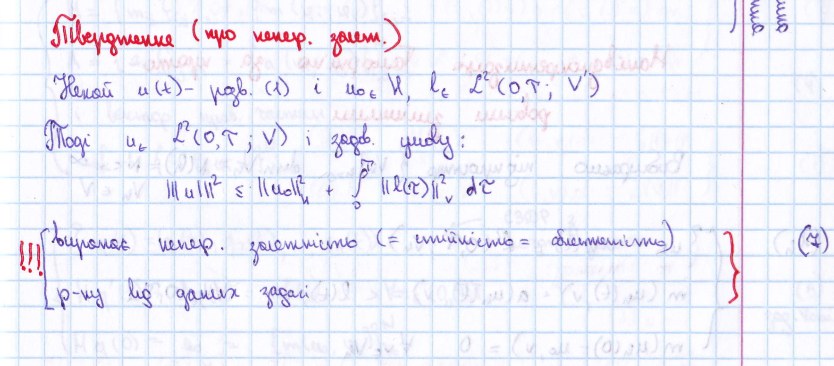 Твердження (про непер. залеж.)
Нехай u(t) - розв. (1) і u₀ ∈ H, l ∈ L²(0,T; V')
Тоді u ∈ L²(0,T; V) і задов. умову:
|||u|||² ≤ ||u₀||²_H + ∫₀ᵀ ||l(τ)||²_V dτ
!!! [виражає непер. залежність (= стійкість = обмеженість) } (7)
р-ку від даних задачі